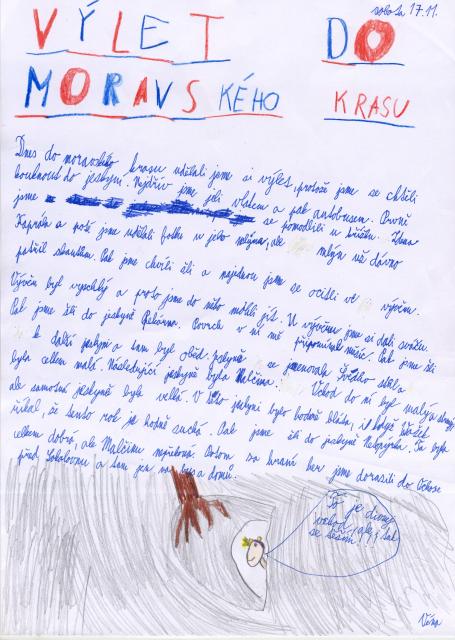 sobota 17.11.
VÝLET DO
MORAVSKÉHO KRASU
Dnes do moravského krasu udělali jsme si výlet, protože jsme se chtěli
kouknout do jeskyní. Nejdřív jsme jeli vlakem a pak autobusem. Prvně
jsme se pomodlili u křížku. Jana
Kaprála a poté jsme udělali fotku u jeho mlýna, ale mlýn už dávno
patřil. Pak jsme chvíli šli a najednou jsme se ocitli ve vývěru.
Vývěr byl vyschlý a proto jsme do něho mohli jít. U vývěru jsme si dali svačinu.
Pak jsme šli do jeskyně Pekárna. Povrch v ní mě připomínal měsíc. Pak jsme šli
k další jeskyni a tam byl oběd. Jeskyně se jmenovala Švédův stůl a
byla celkem malá. Následující jeskyně byla Malčina. Vchod do ní byl malý
ale samotná jeskyně byla velká. V této jeskyni bylo hodně bláta, i když
říkal, že tento rok je hodně suchá. Pak jsme šli do jeskyně Netopýrka. Ta byla
celkem dobrá, ale Malčinu nepřekoná. Potom za hraní her jsme dorazili do Ochoze
před Sokolovnu a tam jel bus domů.
To je divný
vchod, ale tak
se těším!!!
Věra